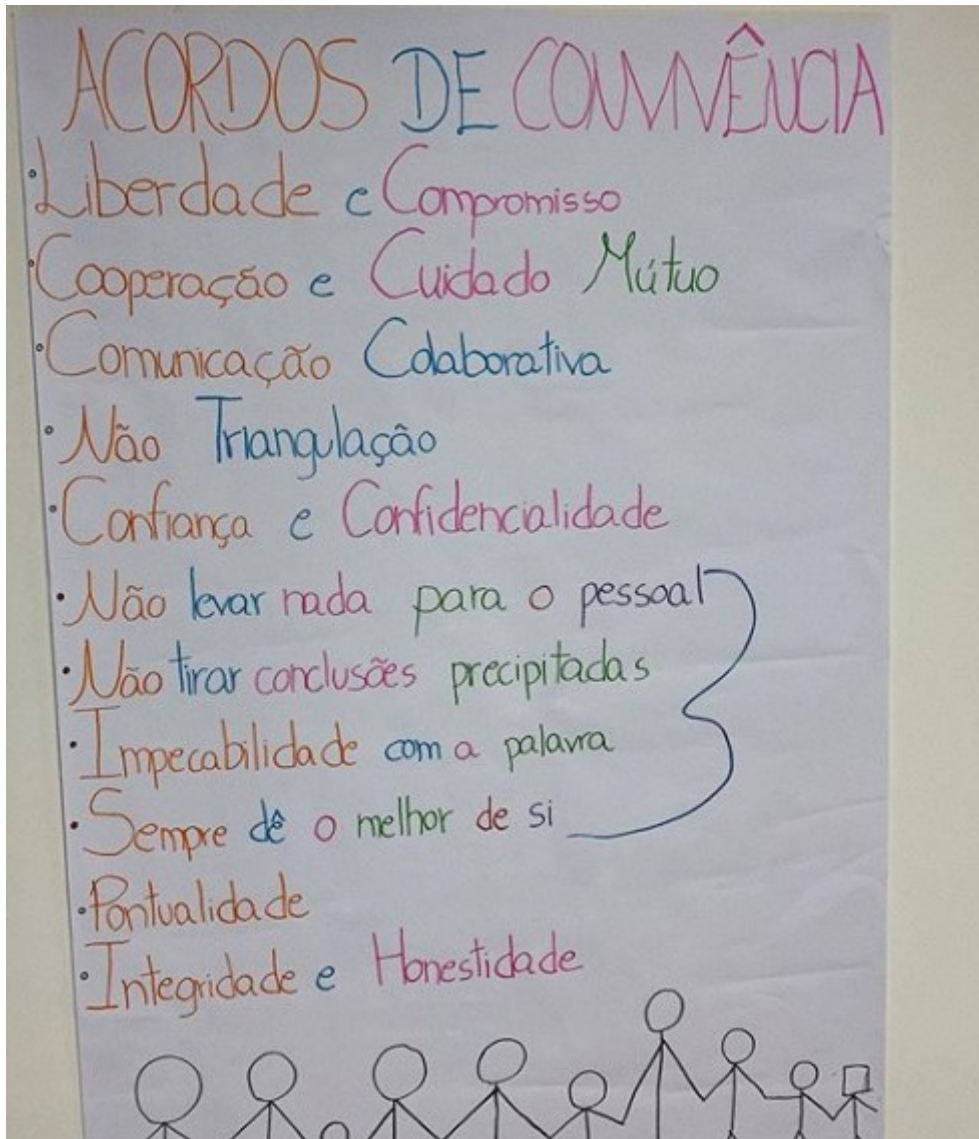 ACORDOS DE CONVIVÊNCIA
• Liberdade e Compromisso
• Cooperação e Cuidado Mútuo
• Comunicação Colaborativa
• Não Triangulação
• Confiança e Confidencialidade
• Não levar nada para o pessoal
• Não tirar conclusões precipitadas
• Impecabilidade com a palavra
• Sempre dê o melhor de si
• Pontualidade
• Integridade e Honestidade